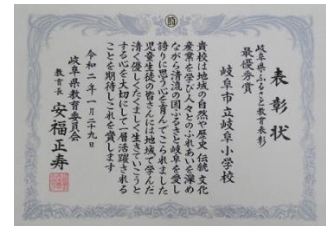 表彰状
岐阜県ふるさと教育表彰
最優秀賞
岐阜市立岐阜小学校
貴校は地域の自然や歴史 伝統 文化
産業を学び人々とのふれあいを深め
ながら清流の国ふるさと岐阜を愛し
誇りに思う心を育んでこられました
児童生徒の皆さんには地域で学んだ
清く優しくたくましく生きていこうと
する心を大切にして一層活躍される
ことを期待しこれを賞します
令和二年一月二十九日
岐阜県教育委員会
教育長 安福正寿